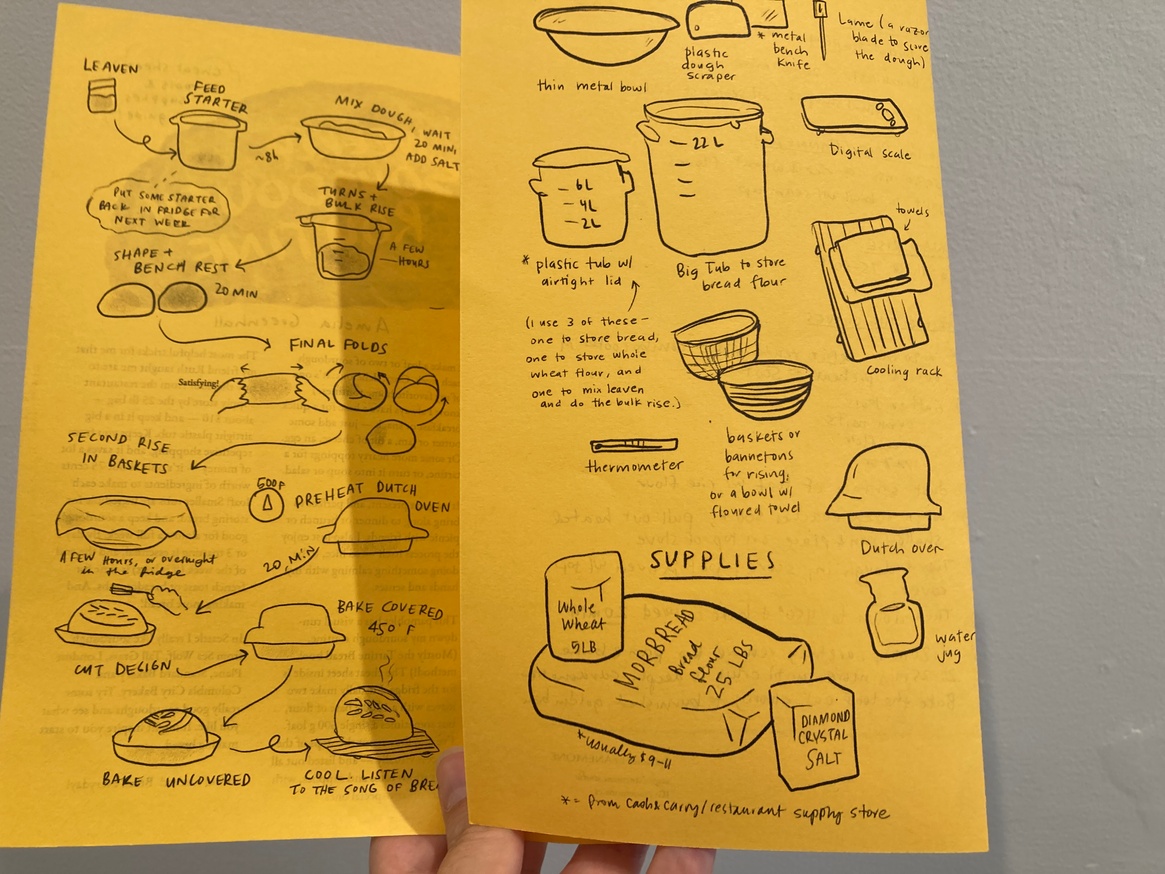 LEAVEN
FEED
STARTER
~8h
MIX DOUGH, WAIT
20 MIN,
ADD SALT
PUT SOME STARTER
BACK IN FRIDGE FOR
NEXT WEEK
TURNS +
BULK RISE
A FEW
HOURS
SHAPE +
BENCH REST
20 MIN
FINAL FOLDS
Satisfying!
SECOND RISE
IN BASKETS
A FEW HOURS, or overnight
in the fridge
500F
PREHEAT DUTCH
OVEN
20 MIN
CUT DESIGN
BAKE COVERED
450°F
BAKE UNCOVERED
COOL. LISTEN
TO THE SONG OF
thin metal bowl
plastic
dough
scraper
* metal
bench
knife
Lame (a razor
blade to score
the dough)
6L
4L
2L
22L
Digital scale
* plastic tub w/
airtight lid
Big Tub to store
bread flour
towels
(I use 3 of these—
one to store bread,
one to store whole
wheat flour, and
one to mix leaven
and do the bulk rise.)
cooling rack
thermometer
baskets or
bannetons
for rising,
or a bowl w/
floured towel
Dutch oven
SUPPLIES
Whole
Wheat
5LB
MORBREAD
Bread
flour
25 LBS
*usually $9-11
water
jug
DIAMOND
CRYSTAL
SALT
*= from cash&carry/restaurant supply store